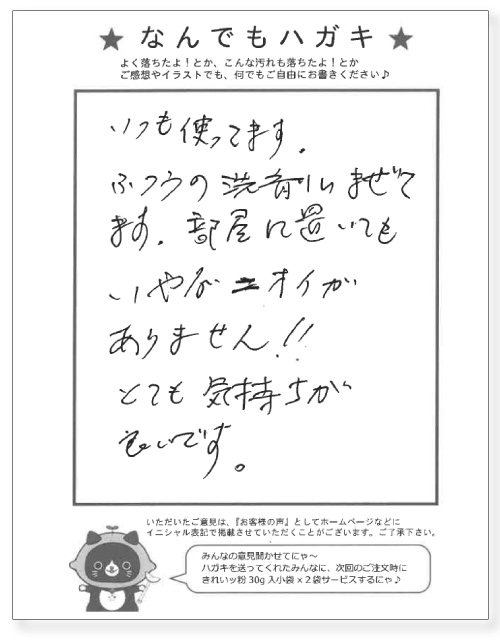 ★ なんでもハガキ ★
よく落ちたよ！とか、こんな汚れも落ちたよ！とか
ご感想やイラストでも、何でもご自由にお書きください♪
いつも使ってます。
ふつうの洗剤にまぜて
ます。部屋に置いても
いやなニオイが
ありません!!
とても気持ちが
良いです。
いただいたご意見は、『お客様の声』としてホームページなどに
イニシャル表記で掲載させていただくことがございます。ご了承下さい。
みんなの意見聞かせてにゃ～
ハガキを送ってくれたみんなに、次回のご注文時に
きれいッ粉30g入小袋×2袋サービスするにゃ♪